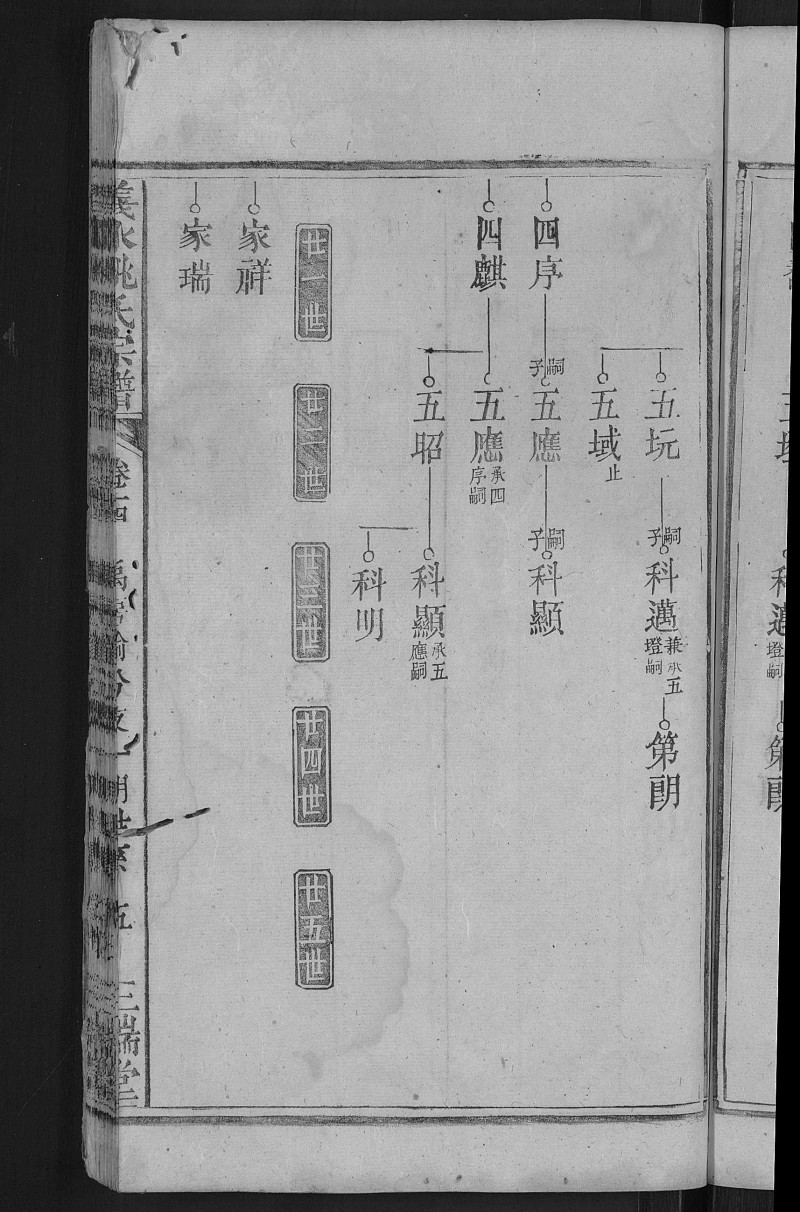 嗣子
五玩
科邁 兼承五墱嗣
第朗
五域 止
四序
嗣子
五應
嗣子
科顯
四麒
五應 承四序嗣
五昭
科顯 承五應嗣
科明
廿一世
廿二世
廿三世
廿四世
廿五世
家祥
家瑞
氏宗譜
卷十四
五
三瑞堂